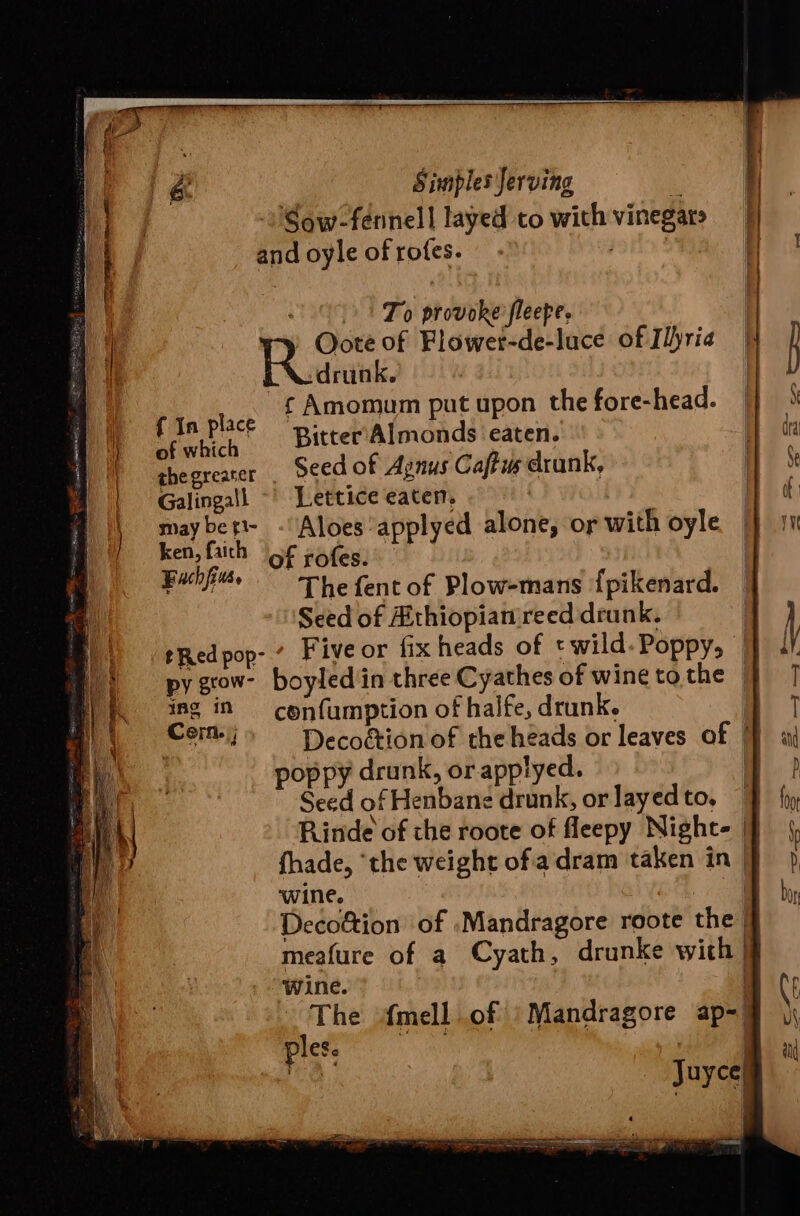 6 Simples ſerving
Sow-fennell layed to with vinegar
and oyle of roſes.
To provoke ſleepe.
Roote of Flower-de-luce of Illyria
drunk.
ſ Amomum put upon the fore-head.
Bitter Almonds eaten.
Seed of Agnus Caſtus drunk,
Lettice eaten.
Aloes applyed alone, or with oyle
of roſes.
The ſent of Plow-mans ſpikenard.
Seed of Æthiopian reed drunk.
Five or ſix heads of t wild Poppy,
boyled in three Cyathes of wine to the
conſumption of halfe, drunk.
Decoction of the heads or leaves of
poppy drunk, or applyed.
Seed of Henbane drunk, or layed to.
Rinde of the roote of ſleepy Night-
ſhade, the weight of a dram taken in
wine.
Decoction of Mandragore roote the
meaſure of a Cyath, drunke with
wine.
The ſmell of Mandragore ap-
ples.
Juyce
ſ In place
of which
the greater
Galingall
may be ta-
ken, ſaith
Fuchſius.
t Red pop-
py grow-
ing in
Corn.